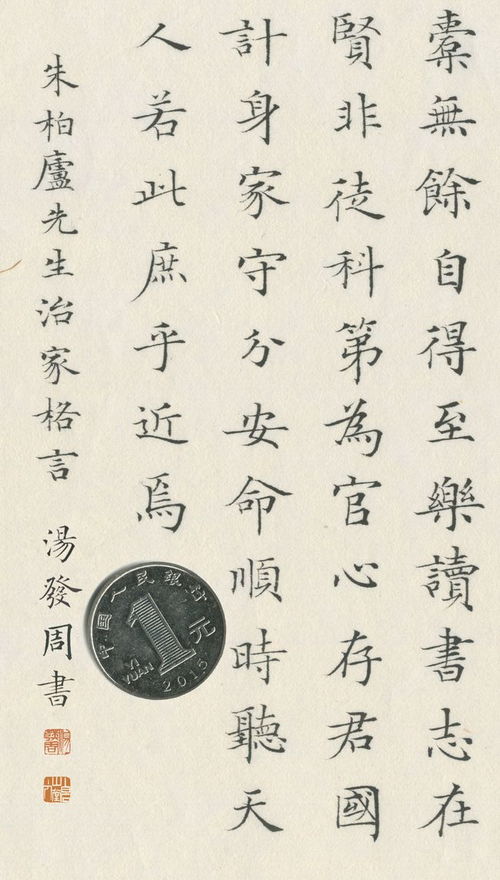 橐無餘自得至樂讀書志在
賢非徒科第為官心存君國
計身家守分安命順時聽天
人若此庶乎近焉
朱柏廬先生治家格言 湯發周書
中国人民银行
1元
YI YUAN
2015